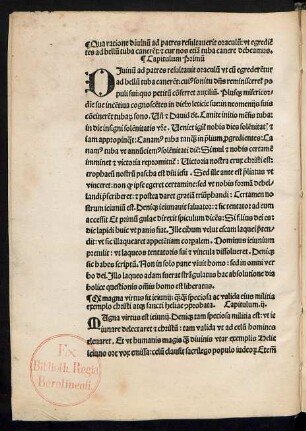 Qua ratione diuinũ ad patres resultauerit oraculũ vt egrediẽ
tes ad bellũ tuba canerẽt: et cur nos etiã tuba canere debeamus.
¶ Capitulum Primũ
DIuinũ ad patres resultauit oraculũ vt cũ egrederẽt᷑
ad bellũ tuba canerẽt: cuiꝰ sonitu dñs reminisceret
populi sui quo petitũ cõferret auxiliũ.
die sue incẽtiua cognoscẽtes in diebꝰ leticie sue in neomenijs suis
cõcinerẽt tubaꝝ sono. Vñ Dauid
in die insigni solẽnitatis vr̃e.
iam appropinq̃t. Canamꝰ tuba
namꝰ tuba vt annũciemꝰ solẽnitatẽ dñi.
imminet z victoria repromittit᷑. Victoria nostra crux christi est:
trophaeũ nostrũ pascha est dñi iesu. Sed ille ante est p̃liatus vt
vinceret. non q̃ ipse egeret certamine: sed vt nobis formã p̃be
lãdi p̃scriberet. z postea daret gratiã triũphandi: Certamen no
strum ieiuniũ est. Deniq̃ ieiunauit saluator: et tentator ad eum
accessit. Et primũ gule direxit spiculum dicẽs: Si filius dei es: dic
lapidi huic vt panis fiat. Ille cibum velut escam laquei p̃ten
dit: vt sic illaquearet appetentiam corpalem. Dominus ieiunium
pretulit: vt laqueos tentatoris sui z vincula dissolueret. Denique
sic habes scriptũ. Non in solo pane viuit homo: sed in omni ver
bo dei. Illo laqueo adam fuerat strãgulatus: hac absolutione dia
bolice questionis omnis homo est liberatus.
¶ magna virtus sit ieiuniũ: species ac valida eius militia
exemplo christi atq̃ sancti helie: probatur. Capitulum .ij.
MAgna virtus est ieiuniũ. Deniq̃ tam speciosa militia est: vt ie
iunare delectaret z christũ: tam valida vt ad celũ homines
eleuaret. Et vt humanis magis q̃ diuinis vtar exemplis: Helie
ieiuno ore vox emissa: celũ clausit sacrilego populo iudeoꝝ. Etem̃
Ex
Biblioth. Regia
Berolinensi.